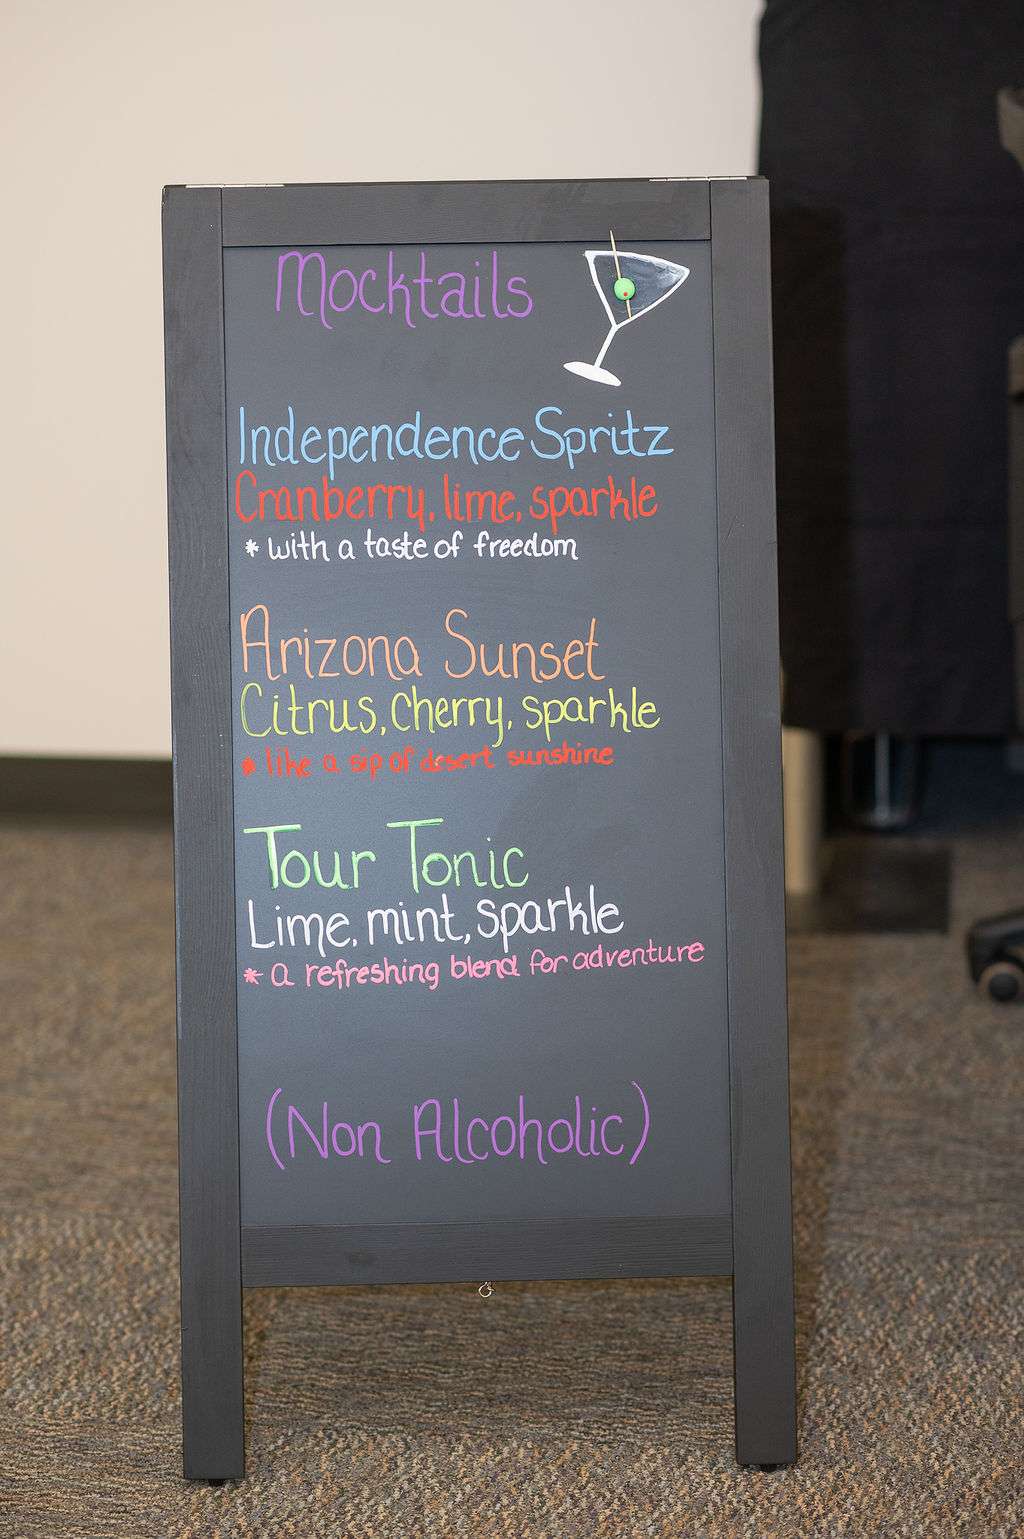 Mocktails
Independence Spritz
Cranberry, lime, sparkle
* with a taste of freedom
Arizona Sunset
Citrus, cherry, sparkle
* like a sip of desert sunshine
Tour Tonic
Lime, mint, sparkle
* a refreshing blend for adventure
(Non Alcoholic)